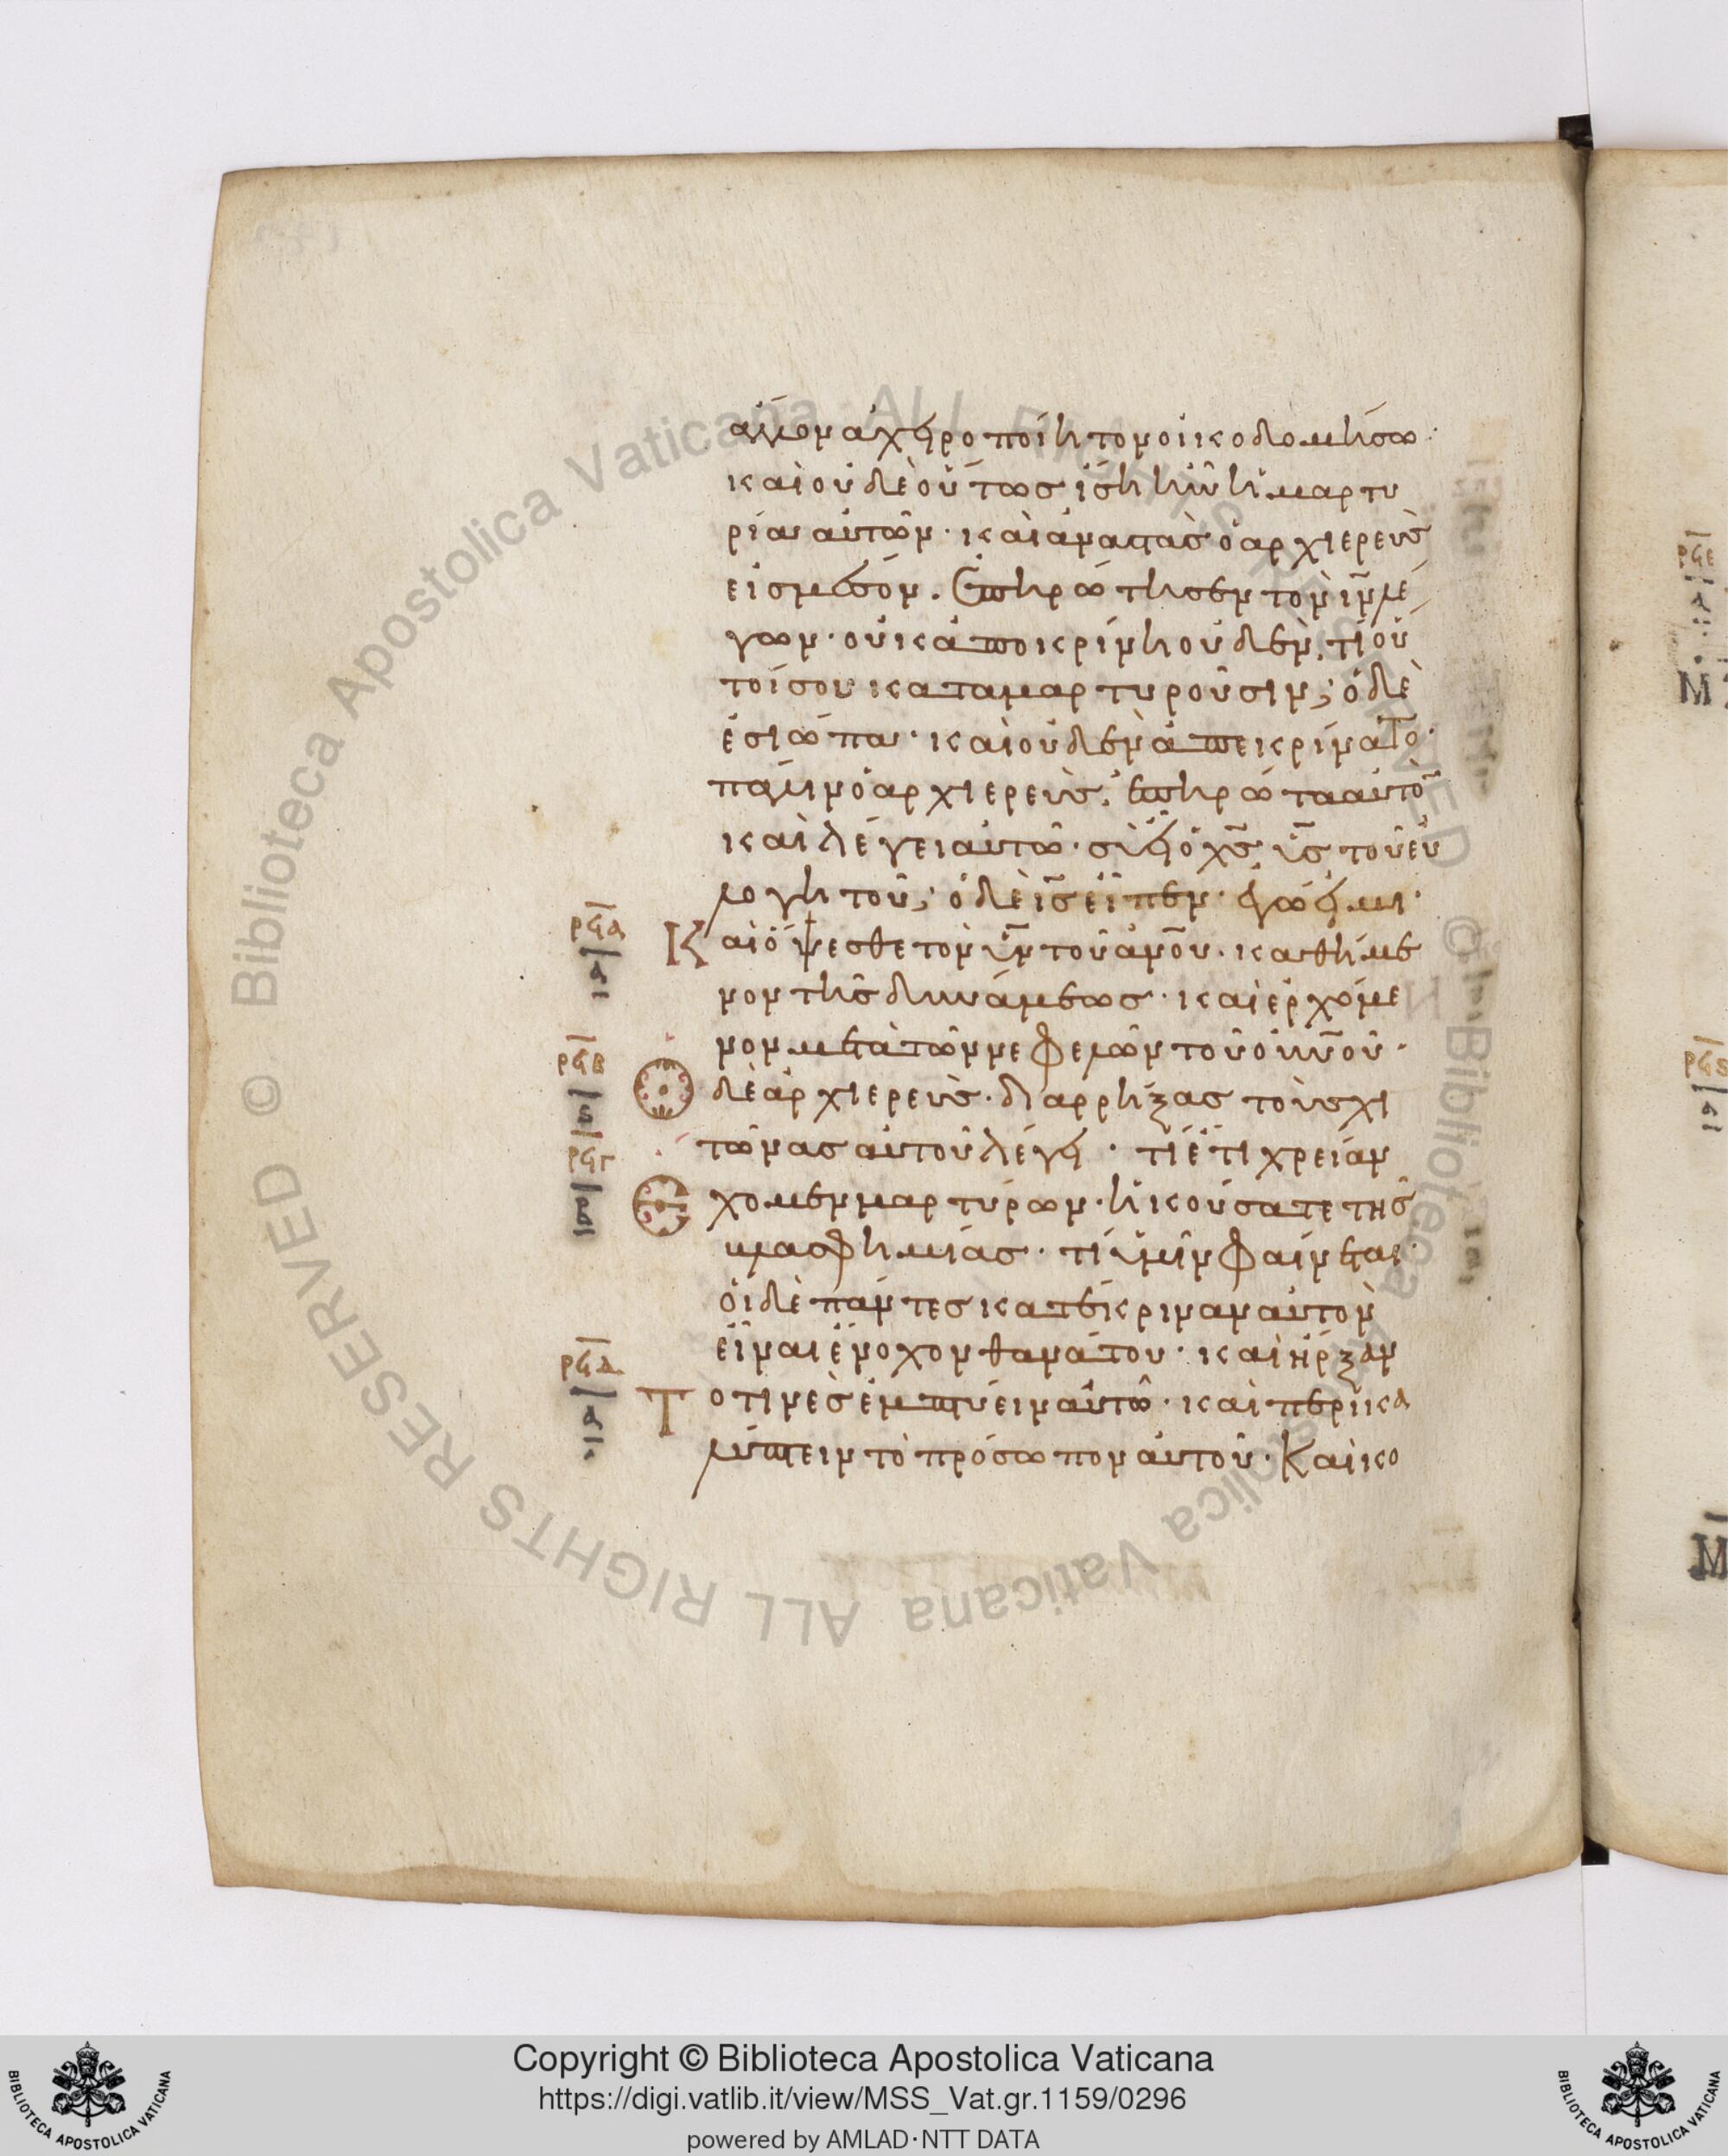 ἄλλον ἀχειροποίητον οἰκοδομήσω·
καὶ οὐδὲ οὕτως ἴση ἦν ἡ μαρτυ
ρία αὐτῶν· καὶ ἀναστὰς ὁ ἀρχιερεὺς
εἰς μέσον. ἐπηρώτησεν τὸν ιν λέ
γων· οὐκ ἀποκρίνη οὐδέν· τί οὗ
τοί σου καταμαρτυροῦσιν; ὁ δὲ
ἐσιώπα· καὶ οὐδὲν ἀπεκρίνατο·
πάλιν ὁ ἀρχιερεὺς· ἐπηρώτα αὐτὸν
καὶ λέγει αὐτῶ· σὺ εἶ ὁ χς υς τοῦ εὐ
λογητοῦ; ὁ δὲ ις εἶπεν· ἐγώ εἰμι·
Καὶ ὄψεσθε τὸν υν τοῦ ανου· καθήμε
νον τῆς δυνάμεως· καὶ ἐρχόμε
νον μετὰ τῶν νεφελῶν τοῦ οὐνου·
Ο δὲ ἀρχιερεὺς· διαρρήξας τοὺς χι
τῶνας αὐτοῦ λέγει· τί ἔτι χρείαν
Ε χομεν μαρτύρων· ἠκούσατε τῆς
βλασφημίας· τί ὑμῖν φαίνεται·
οἱ δὲ πάντες κατέκριναν αὐτὸν
εἶναι ἔνοχον θανάτου· καὶ ἤρξαν
Τ ο τινὲς ἐμπτύειν αὐτῶ· καὶ περικα
λύπτειν τὸ πρόσωπον αὐτοῦ· Καὶ κο
ρϟα
α
ρϟβ
ς
ρϟγ
β
ρϟδ
α
ρϟε
ρϟς
Μ
Μ
© Biblioteca Apostolica Vaticana ALL RIGHTS RESERVED
© Biblioteca Apostolica Vaticana ALL RIGHTS RESERVED
Copyright © Biblioteca Apostolica Vaticana
https://digi.vatlib.it/view/MSS_Vat.gr.1159/0296
powered by AMLAD·NTT DATA
BIBLIOTECA APOSTOLICA VATICANA
BIBLIOTECA APOSTOLICA VATICANA